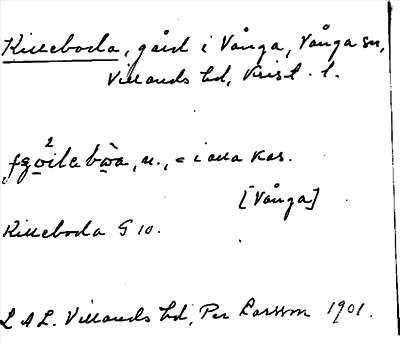 Killeboda, gård i Vånga, Vånga sn,
Villands hd, Krist. l.
n., = i alla kas.
[Vånga]
Killeboda G 10.
L A L. Villands hd, Per Larsson 1901.